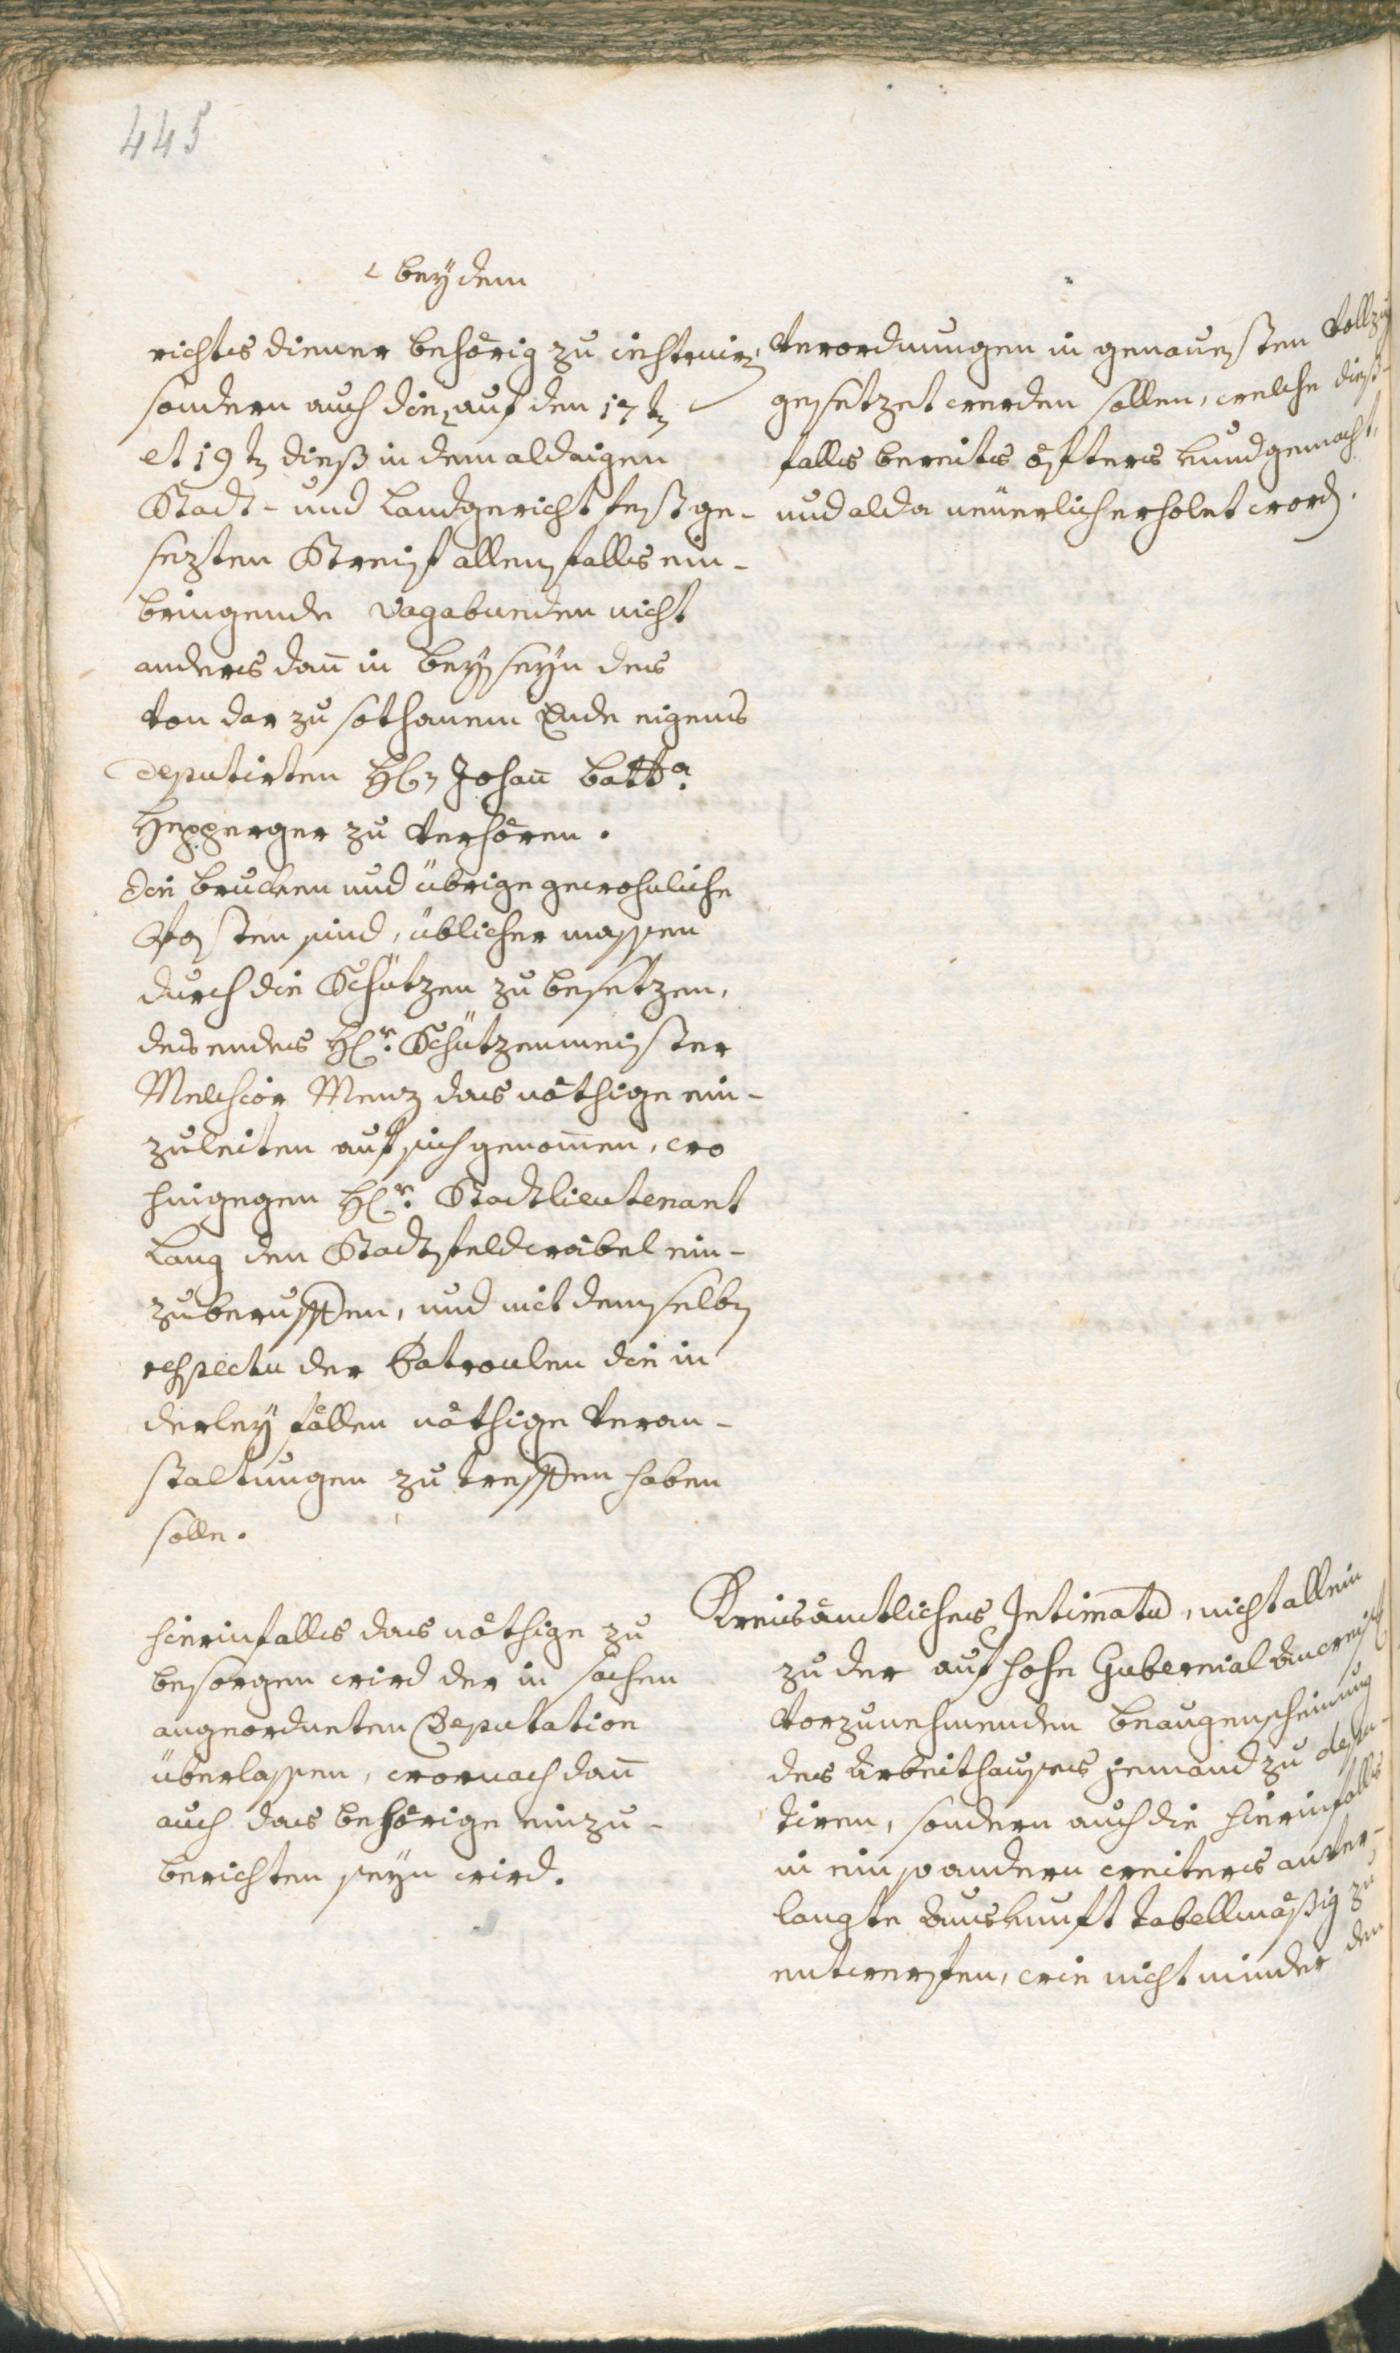 445
beydem
richts diener behörig zu instruirn,
sondern auch die, auf den 17tn
et 19tn dieß in dem aldaigen
Stadt- und Landgericht festge-
sezten Streif allenfalls ein-
bringende Vagabunden nicht
anders dan̄ in beyseyn des
von dar zu sothanem Ende eigens
deputirten H. Johan̄ Batta
Hepperger zu verhören.
die brucken und übrige gewohnliche
Posten sind, üblicher massen
durch die Schützen zu besetzen,
des endes Hr. Schützenmeister
Melchior Menz das nöthige ein-
zuleiten auf sich genom̄en, wo
hingegen Hr. Stadtlieutenant
Lang den Stadtfeldwäbel ein-
zuberuffen, und mit demselbn
respectu der Patroulen die in
derley fällen nöthige Veran-
staltungen zu treffen haben
solle.
hierinfalls das nöthige zu
besorgen wird der in sachen
angeordneten Deputation
überlassen, wornach dan̄
auch das behörige einzu-
berichten seyn wird.
Verordnungen in genauesten Vollzug
gesetzet werden sollen, welche dieß-
falls bereits öfters kundgemacht,
und alda neüerlich erholet word.
Kreisämtliches Intimatū, nicht allein
zu der auf hohe Gubernial Anweisg
Vorzunehmenden beaugenscheinung
des Arbeithauses jemand zu depu-
tiren, sondern auch die hierinfalls
in ein so andern weiters anver-
langte Auskunft tabellmäßig zu
entwerfen, wie nicht minder den